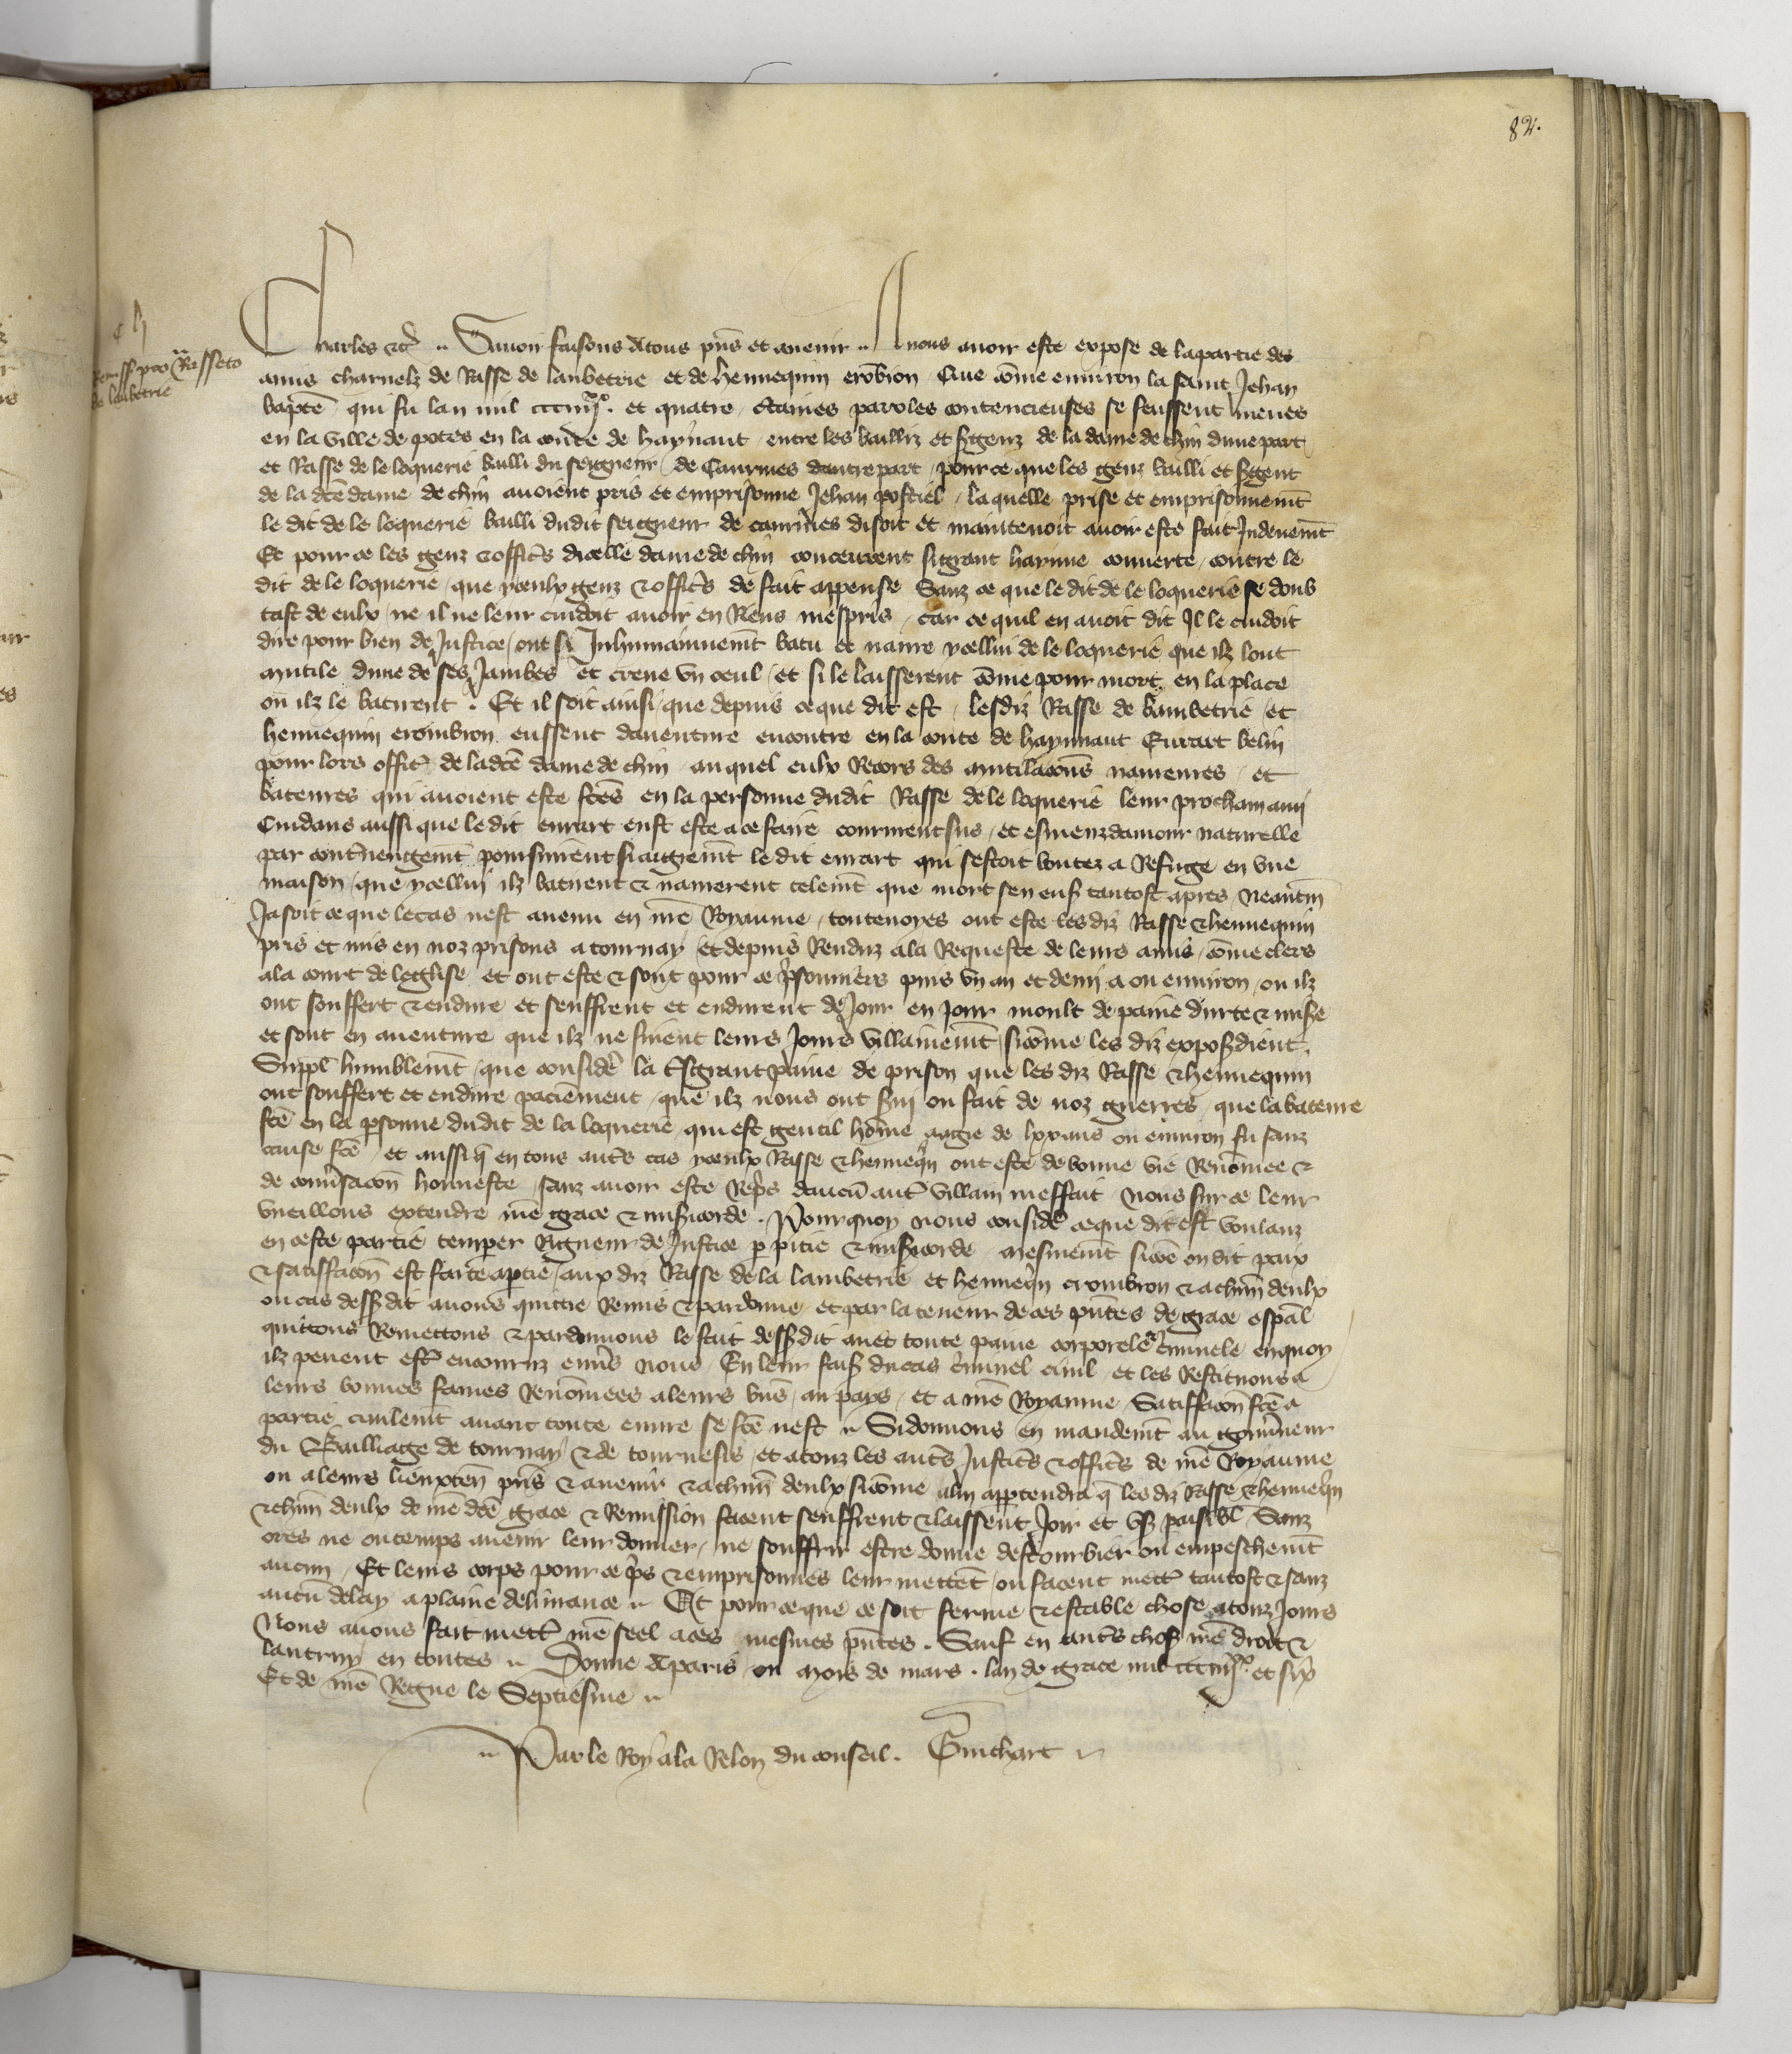 82.
Remissio pro Rasseto
de lanbetrie
Charles etc. Savoir faisons A tous pns et avenir A nous avoir este expose de la partie des
amis charnelz de Rasse de lanbetrie et de hennequin crōbion Que cōme environ la saint Jehan
bapte qui fu lan mil ccciiijxx. et quatre ctaines paroles contencieuses se feussent meues
en la ville de potes en la conte de haynaut entre les bailliz et sgenz de la dame de chin dune part
et Rasse de le loquerie bailli du seigneur de Caurines dautre part pour ce que les genz bailli et sgent
de la dce dame de chin avoient pris et emprisonne Jehan postiel la quelle prise et emprisonnemt
le dit de le loquerie bailli dudit seigneur de caurines disoit et maintenoit avoir este fait Induemt
Et pour ce les genz & offics dicelle dame de chin conceurent si grant hayne couverte contre le
dit de le loquerie que yceulx genz & offics de fait appense Sanz ce que le dit de le loquerie se doub
tast de eulx ne il ne leur cuidoit avoir en Riens mespris car ce quil en avoit dit Il le cuidoit
dire pour bien de Justice ont si Inhumainnemt batu et navre ycellui de le loquerie que ilz lont
mutile dune de ses Jambes et creve un oeul et si le laisserent cōme pour mort en la place
ou ilz le batirent. Et il soit ainsi que depuis ce que dit est lesdiz Rasse de lambetrie et
hennequin crombion eussent daventure encontre en la conte de haynnaut Evrart belin
pour lors offic de ladce dame de chin auquel eulx Recors des mutilacons navreures et
bateures qui avoient este fces en la personne dudit Rasse de le loquerie leur prochain ami
Cuidans aussi que le dit evrart eust este a ce faire courrencsus et esmeuz damour naturelle
par contrevengemt poursuirent si aigremt le dit evrart qui sestoit boutez a Refuge en une
maison que ycellui ilz batirent & navrerent telemt que mort sen ens tantost apres Neantm
Ja soit ce que le cas nest avenu en nre Royaume toutevoyes ont este les diz Rasse & hennequin
pris et mis en noz prisons a tournay et depuis Renduz a la Requeste de leurs amis cōme clers
a la court de leglise et ont este & sont pour ce prisonniers puis un an et demi a ou environ ou ilz
ont souffert & endure et seuffrent et endurent de Jour en Jour moult de paine durte & mise
et sont en aventure que ilz ne finent leurs Jours villainemt sicōme les diz exposs dient.
Suppl humblemt que consider la tsgrant paine de prison que les diz Rasse & hennequin
ont souffert et endure paciement que ilz nous ont svi ou fait de noz guerres que la bateure
fce en la psonne dudit de la loquerie qui est gentil hōme aagie de lxx ans ou environ fu sanz
cause fce et aussi q en tous auts cas yceulx Rasse & henneqin ont este de bonne vie Renōmee &
de convsacon honneste sanz avoir este Repris daucu aut villain meffait Nous sur ce leur
vueillons extendre nre grace & misicorde. Pourquoy nous consider ce que dit est voulanz
en ceste partie temprer Rigueur de Justice p pitie & misicorde mesmemt sicōe on dit paix
& satisfacon est faite a ptie aux diz Rasse de la lambetrie et henneqin crombion & a chun deulx
ou cas dessdit avons quitte Remis & pardonne et par la teneur de ces pntes de grace espal
quittons Remettons & pardonnons le fait dessdit avec toute paine corporele Criminele en quoy
ilz pevent est encourruz envers nous En leur faiss du cas Criminel civil et les Restituons a
leurs bonnes fames Renōmees a leurs biens au pays et a nre Royaume Satisfacon fce a
partie civilemt avant toute euvre se fce nest Si donnons en mandemt au gouvneur
du Bailliage de tournay & de tournesis et a touz les auts Justics & offics de nre Royaume
ou a leurs lieuxten pns & avenir & a chun deulx sicōme a lui apptendra q les diz Rasse & henneqin
& chun deulx de nre dce grace & Remission facent seuffrent & laissent Joir et user paisibl Sanz
ores ne ou temps avenir leur donner ne souffrir estre donne destourbier ou empeschemt
aucun Et leurs corps pour ce pris & emprisonnes leur mettent ou facent mett tantost & sanz
aucu delay a plaine delivrance Et pour ce que ce soit ferme & estable chose a touz Jours
Nous avons fait mett nre seel a ces mesmes pntes. Sauf en auts chos nre droit &
lautruy en toutes Donne A paris ou mois de mars. lan de grace mil ccciiijxx. et six
Et de nre Regne le Septiesme
Par le Roy a la Relon du conseil. Guichart